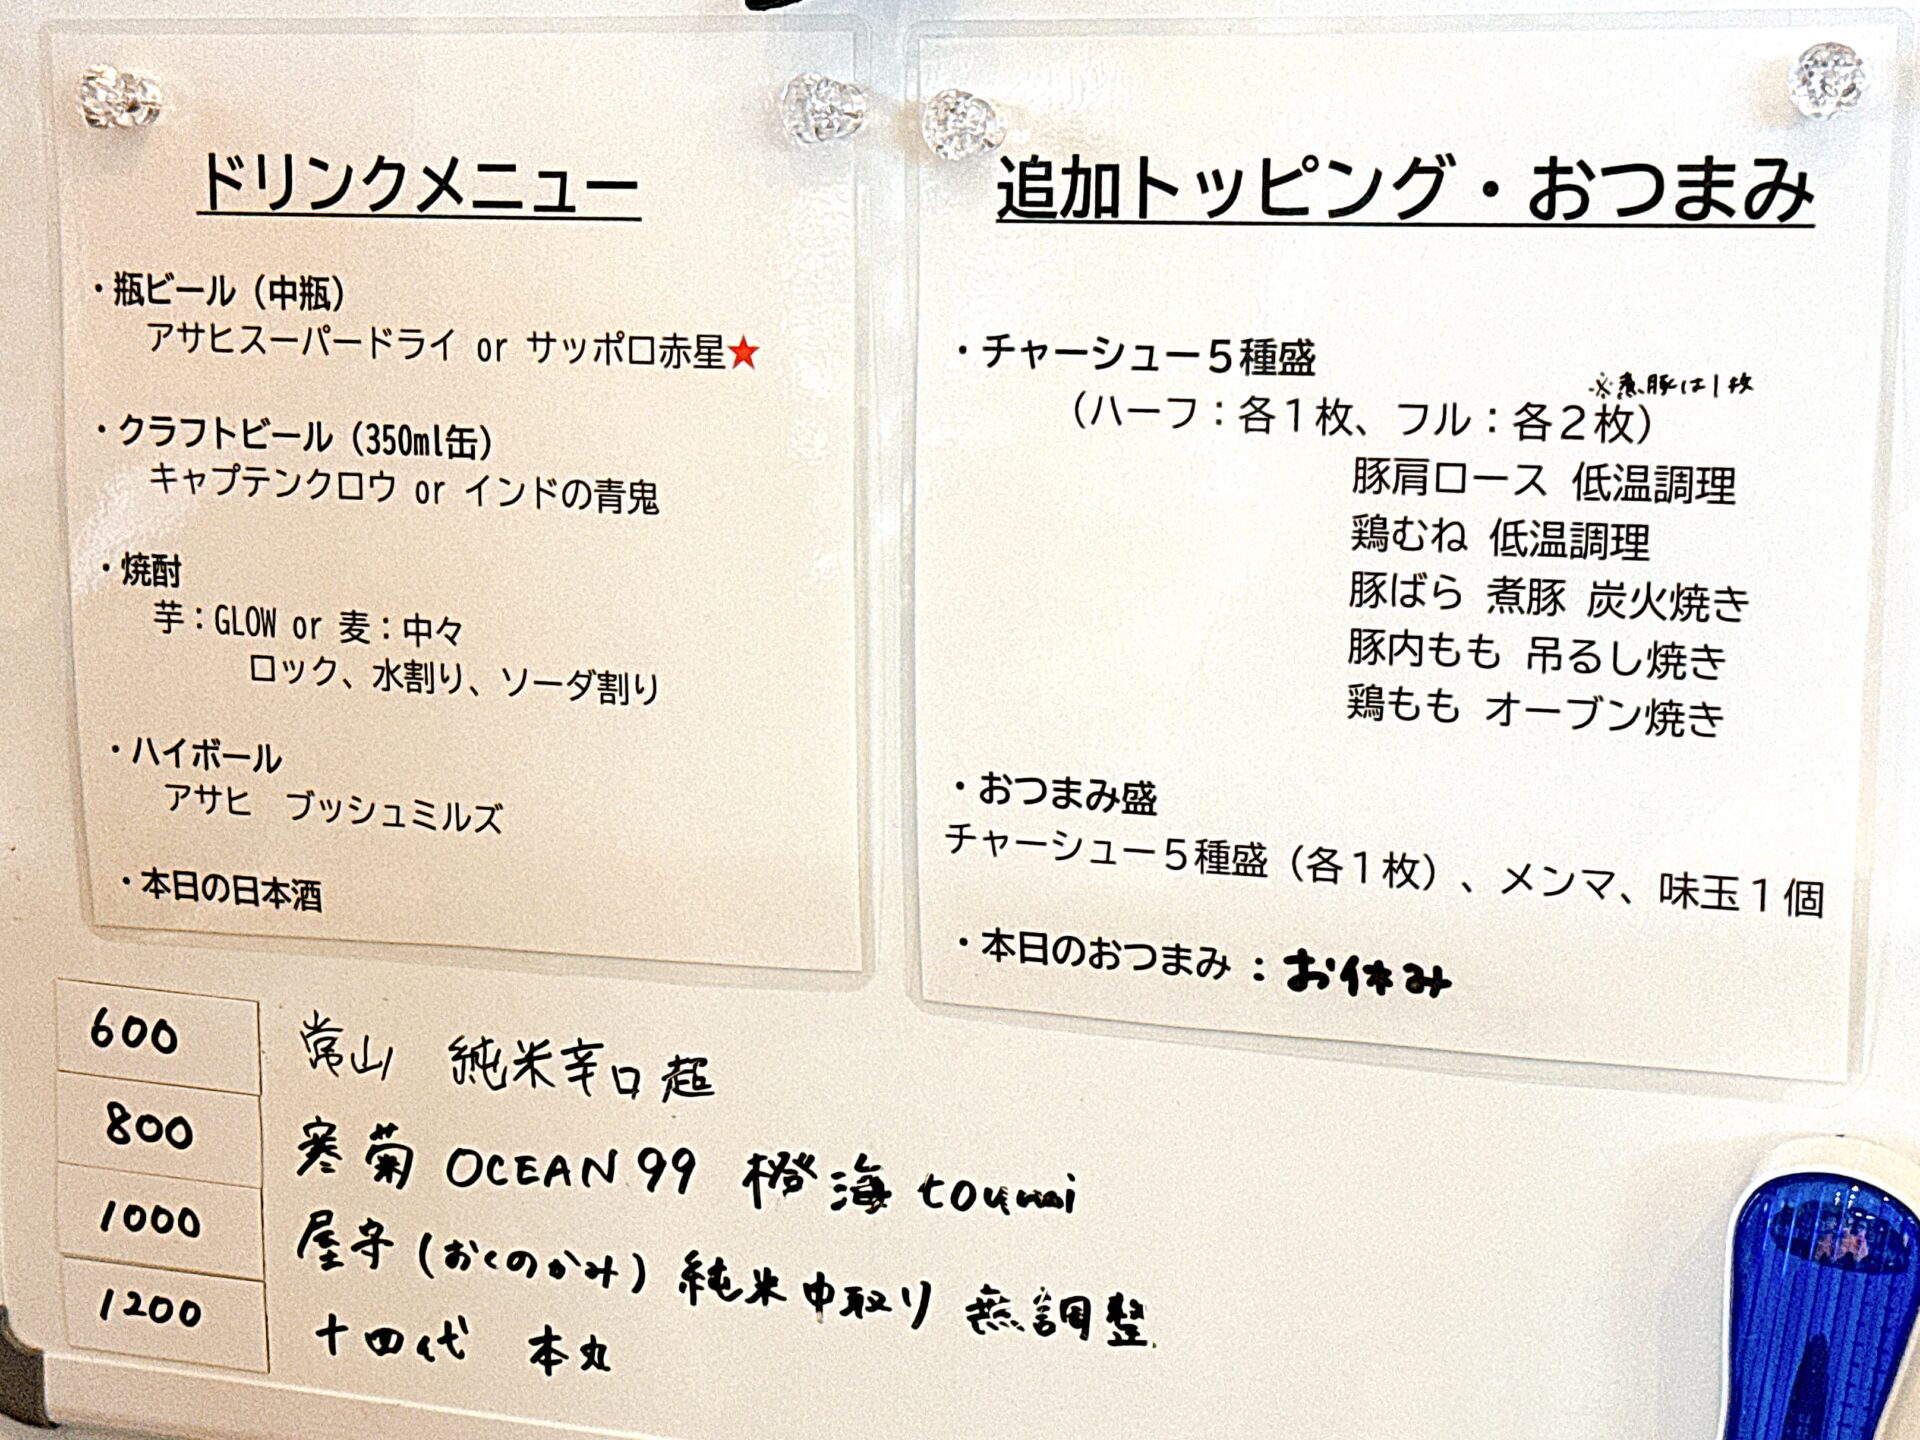 ドリンクメニュー
・瓶ビール（中瓶）
アサヒスーパードライ or サッポロ赤星★
・クラフトビール（350ml缶）
キャプテンクロウ or インドの青鬼
・焼酎
芋：GLOW or 麦：中々
ロック、水割り、ソーダ割り
・ハイボール
アサヒ　ブッシュミルズ
・本日の日本酒
追加トッピング・おつまみ
・チャーシュー５種盛
※煮豚は1枚
（ハーフ：各１枚、フル：各２枚）
豚肩ロース 低温調理
鶏むね 低温調理
豚ばら 煮豚 炭火焼き
豚内もも 吊るし焼き
鶏もも オーブン焼き
・おつまみ盛
チャーシュー５種盛（各１枚）、メンマ、味玉１個
・本日のおつまみ：お休み
600 常山 純米辛口超
800 寒菊 OCEAN99 橙海 toumi
1000 屋守(おくのかみ) 純米中取り 無調整
1200 十四代 本丸